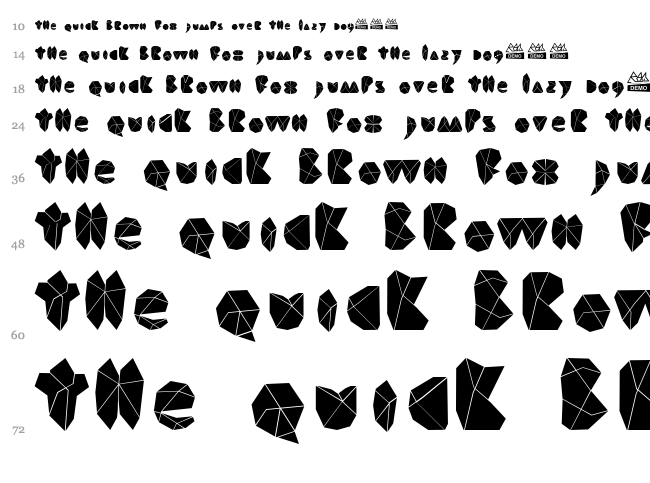 10 the quick brown fox jumps over the lazy dog
14 the quick brown fox jumps over the lazy dog
DEMO DEMO DEMO
18 the quick brown fox jumps over the lazy dog
DEMO
24 the quick brown fox jumps over the
36 the quick brown fox
48 the quick brown
60 the quick brow
72 the quick b